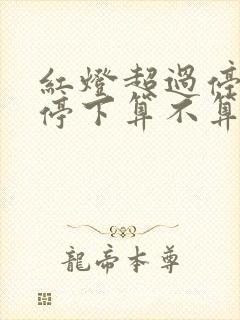 紅燈超過停
停下算不算
龍帝本尊